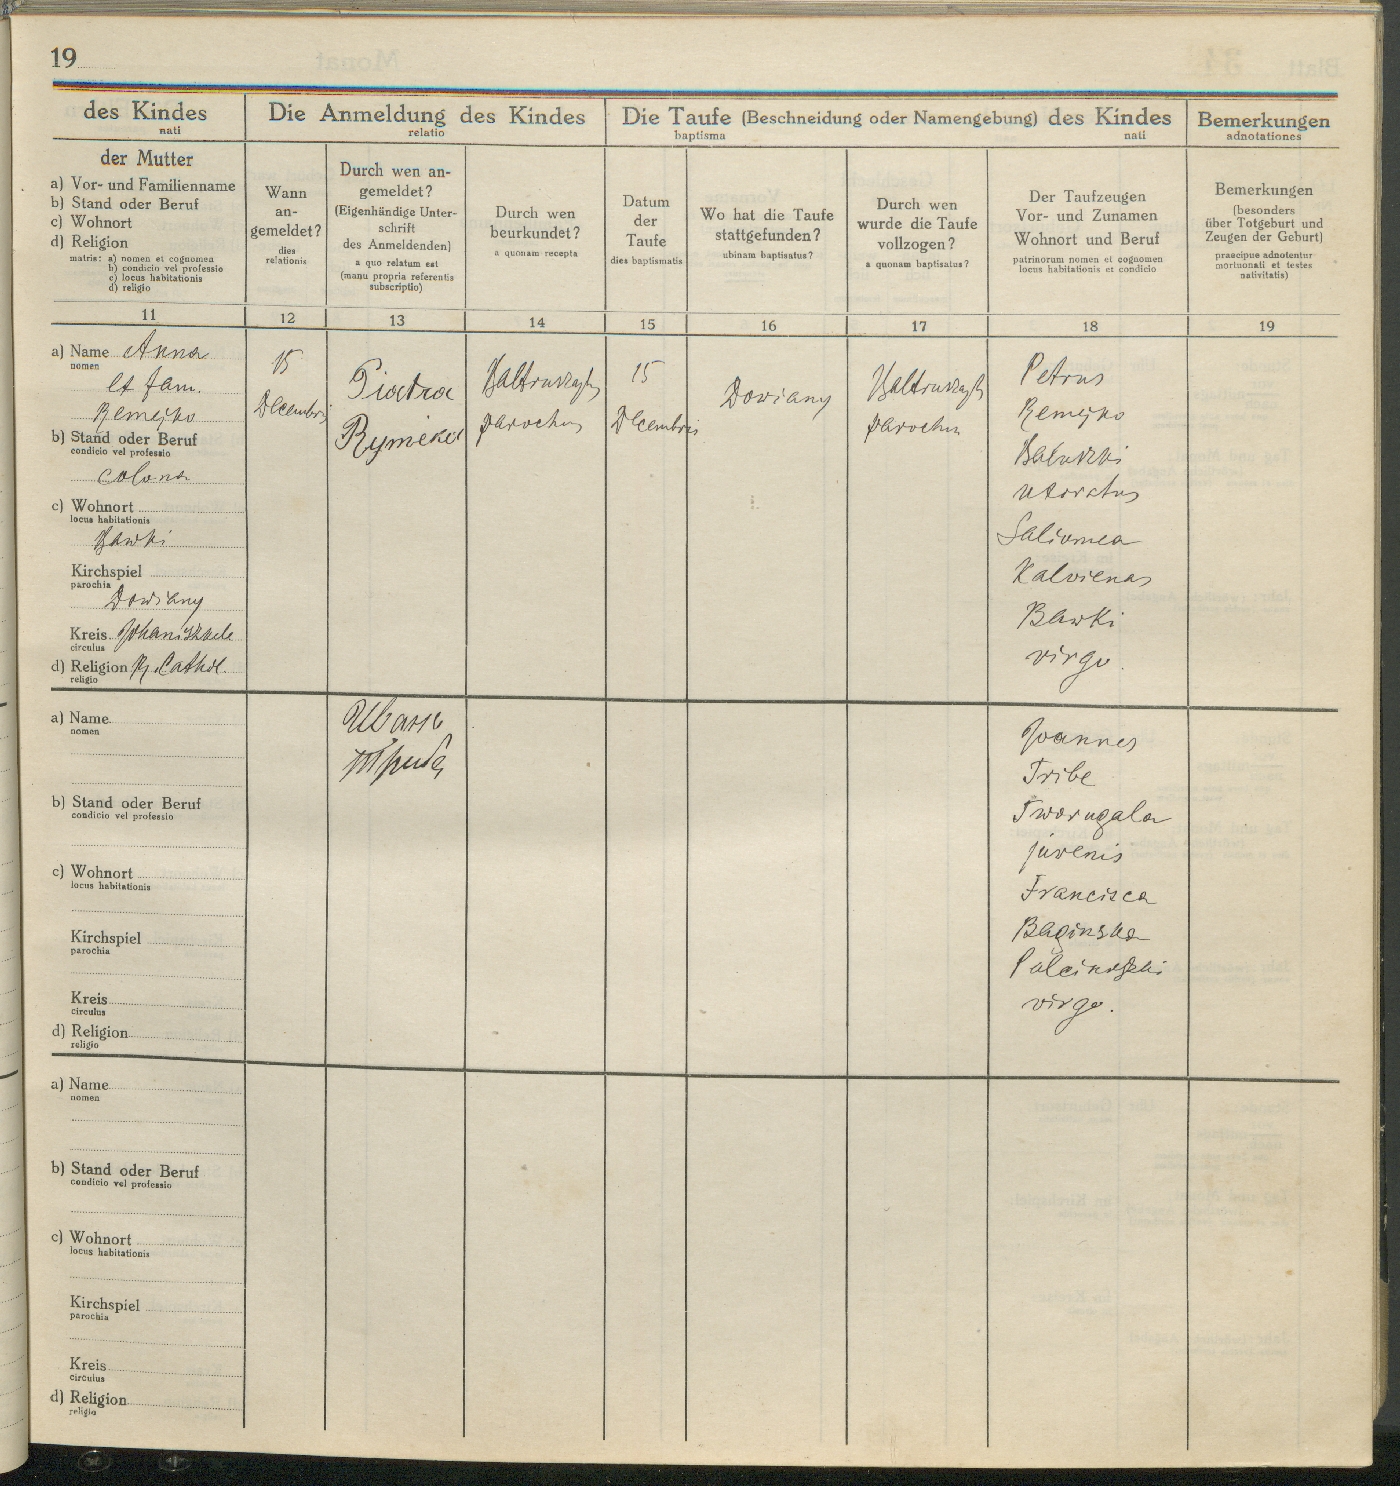 19
des Kindes
nati
Die Anmeldung des Kindes
relatio
Die Taufe (Beschneidung oder Namengebung) des Kindes
baptisma nati
Bemerkungen
adnotationes
der Mutter
a) Vor- und Familienname
b) Stand oder Beruf
c) Wohnort
d) Religion
matris: a) nomen et cognomen
b) condicio vel professio
c) locus habitationis
d) religio
Wann
an-
gemeldet?
dies
relationis
Durch wen an-
gemeldet?
(Eigenhändige Unter-
schrift
des Anmeldenden)
a quo relatum est
(manu propria referentis
subscriptio)
Durch wen
beurkundet?
a quonam recepta
Datum
der
Taufe
dies baptismatis
Wo hat die Taufe
stattgefunden?
ubinam baptisatus?
Durch wen
wurde die Taufe
vollzogen?
a quonam baptisatus?
Der Taufzeugen
Vor- und Zunamen
Wohnort und Beruf
patrinorum nomen et cognomen
locus habitationis et condicio
Bemerkungen
(besonders
über Totgeburt und
Zeugen der Geburt)
praecipue adnotentur
mortuonati et testes
nativitatis)
11
12
13
14
15
16
17
18
19
a) Name Anna
nomen
et fam.
Remejko
b) Stand oder Beruf
condicio vel professio
colona
c) Wohnort
locus habitationis
Bawki
Kirchspiel
parochia
Dowiany
Kreis Johaniszkele
circulus
d) Religion R. Cathol.
religio
15
Decembris
Piatra
parochus
15
Decembris
Dowiany
parochus
Petrus
Remejko
uxoratus
Saliomea
Kalvienas
Bawki
virgo.
a) Name
nomen
b) Stand oder Beruf
condicio vel professio
c) Wohnort
locus habitationis
Kirchspiel
parochia
Kreis
circulus
d) Religion
religio
Иванъ
Триба
Joannes
Tribe
Tworugala
juvenis
Francisca
Baginska
virgo.
a) Name
nomen
b) Stand oder Beruf
condicio vel professio
c) Wohnort
locus habitationis
Kirchspiel
parochia
Kreis
circulus
d) Religion
religio